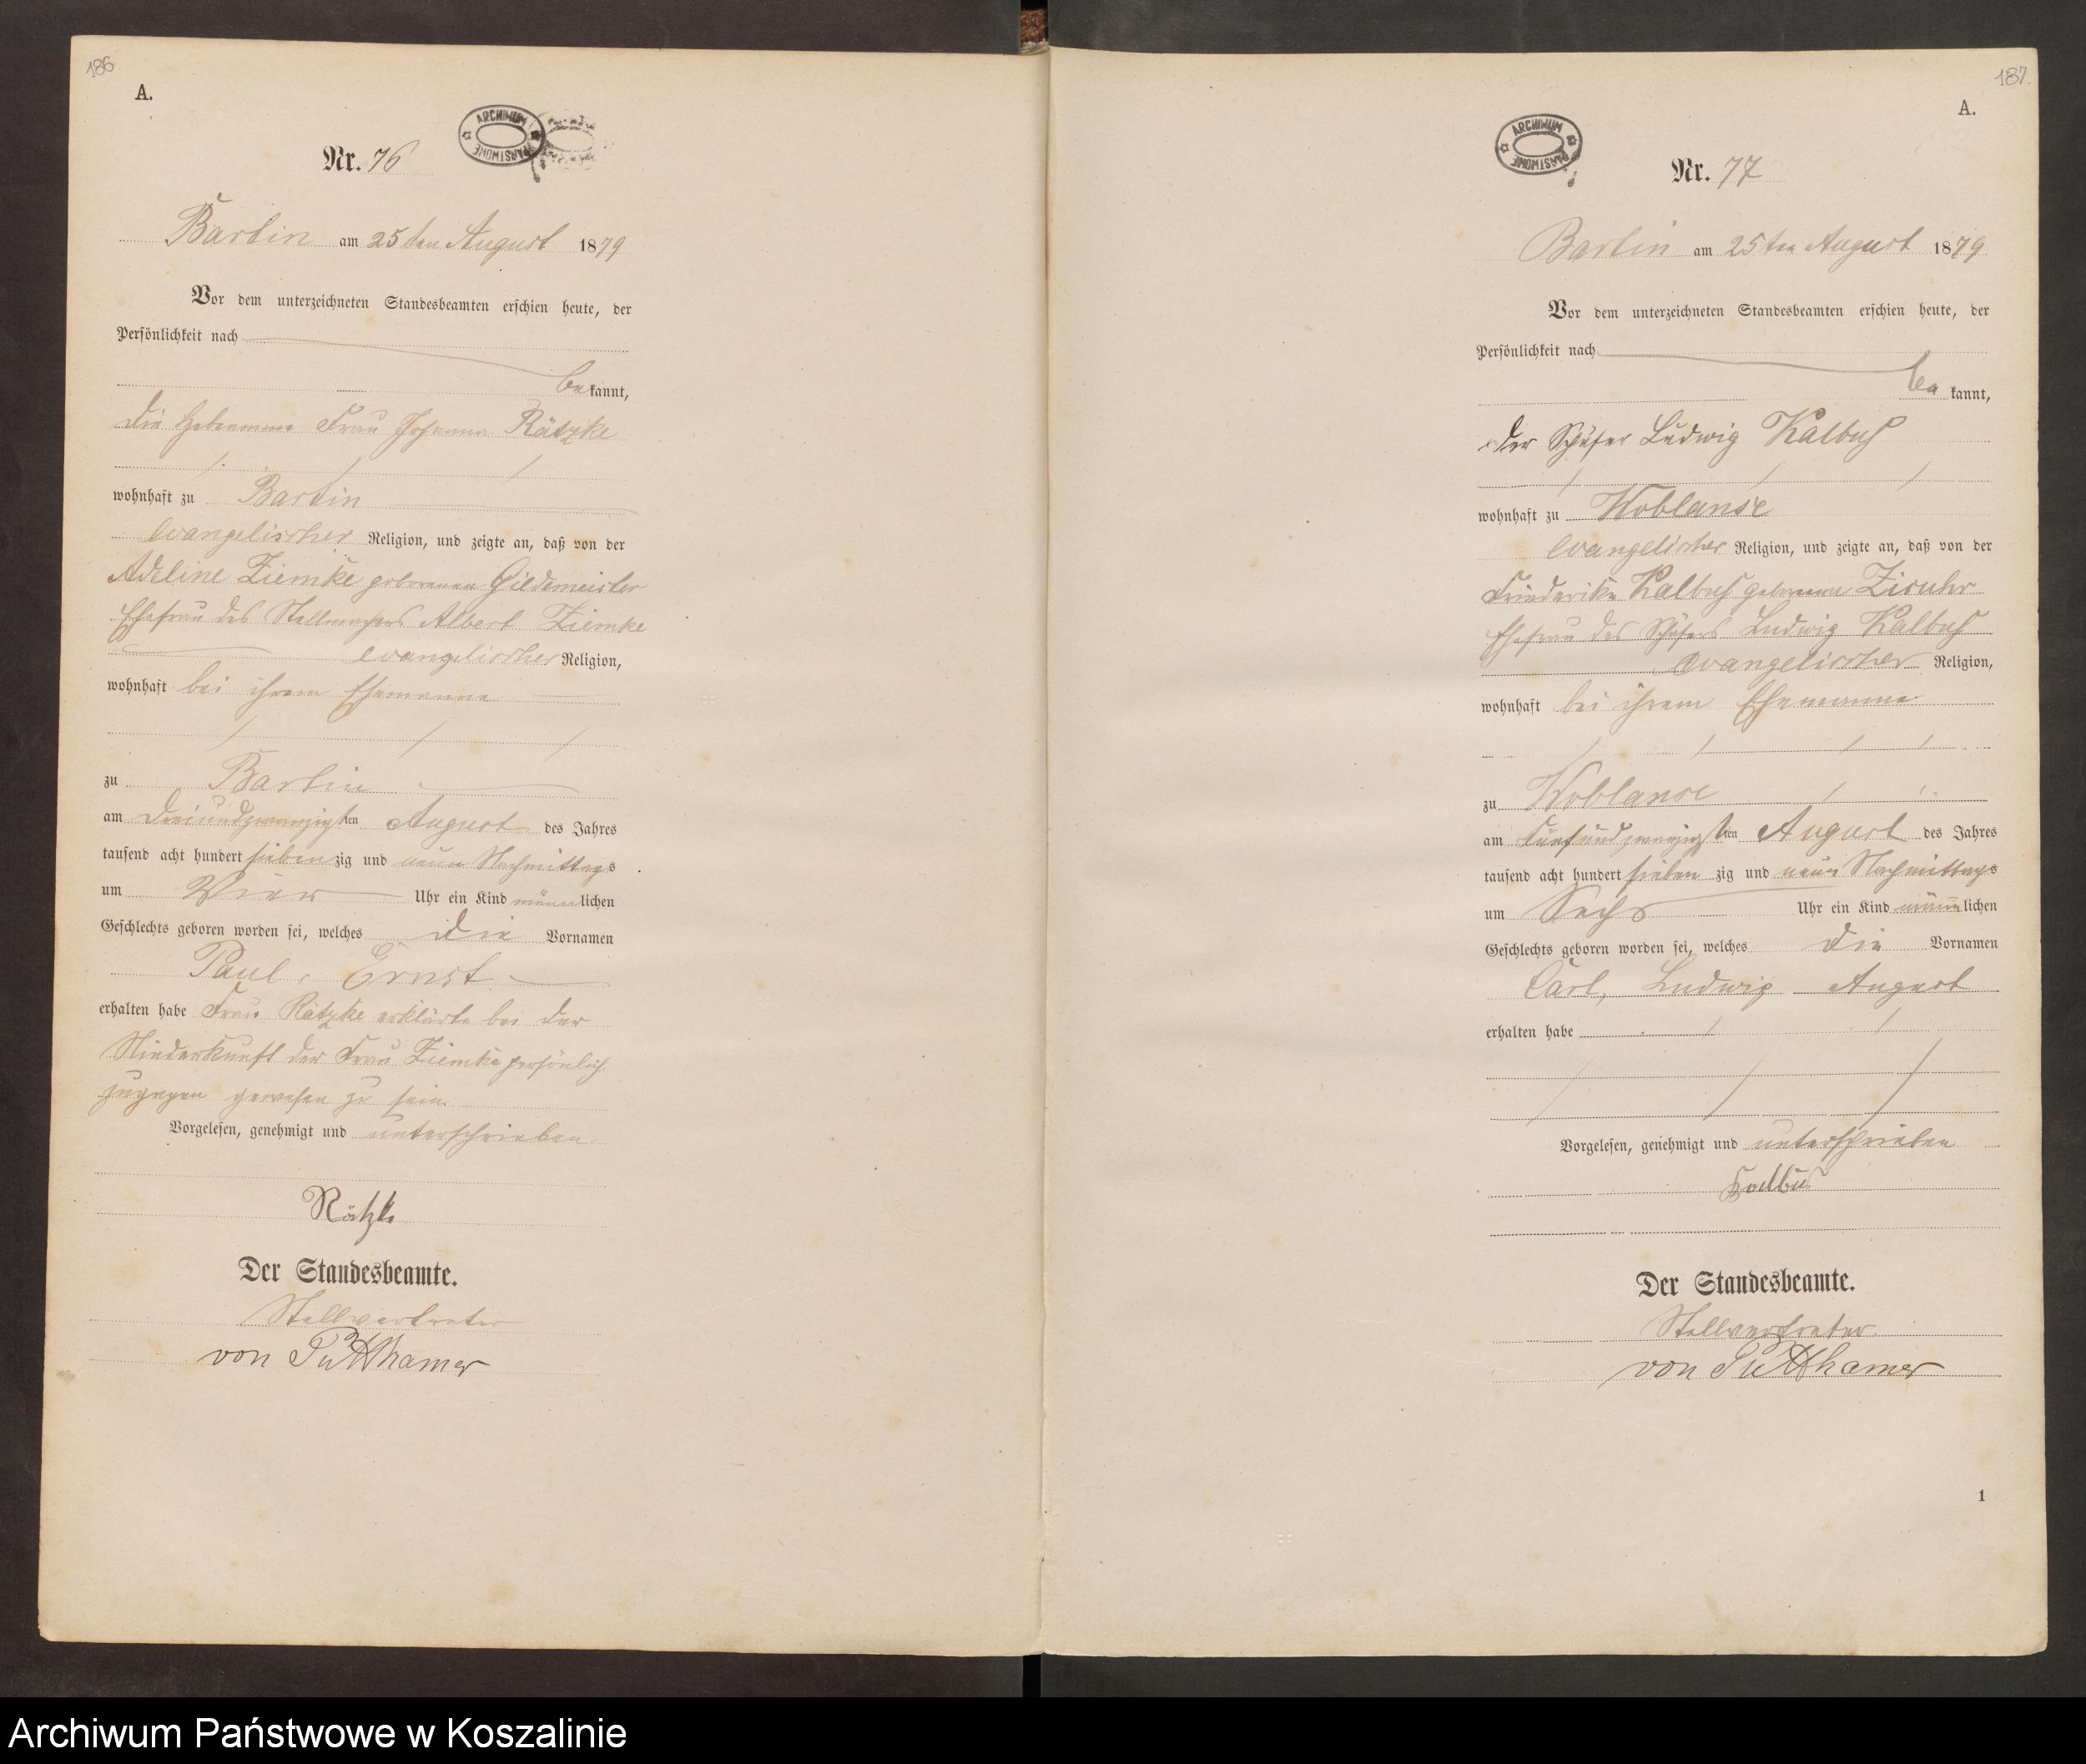 186.
A.
ARCHIWUM PAŃSTWOWE
Nr. 76
Bartin am 25ten August 1879
Vor dem unterzeichneten Standesbeamten erschien heute, der
Persönlichkeit nach
be kannt,
die Hebeamme Frau Johanna Rätzke
wohnhaft zu Bartin
evangelischer Religion, und zeigte an, daß von der
Adeline Ziemke geborenen Gildemeister
Ehefrau des Stellmachers Albert Ziemke
evangelischer Religion,
wohnhaft bei ihrem Ehemanne
zu Bartin
am dreiundzwanzigsten August des Jahres
tausend acht hundert siebenzig und neun Nachmittags
um Vier Uhr ein Kind männlichen
Geschlechts geboren worden sei, welches die Vornamen
Paul, Ernst
erhalten habe Frau Rätzke erklärte bei der
Niederkunft der Frau Ziemke persönlich
zugegen gewesen zu sein.
Vorgelesen, genehmigt und unterschrieben
Rätzke
Der Standesbeamte.
Stellvertreter
von Puttkamer
187.
A.
ARCHIWUM PAŃSTWOWE
Nr. 77
Bartin am 25ten August 1879
Vor dem unterzeichneten Standesbeamten erschien heute, der
Persönlichkeit nach
be kannt,
der Schäfer Ludwig Kalbus
wohnhaft zu Woblanse
evangelischer Religion, und zeigte an, daß von der
Friederike Kalbus geborene
Ehefrau des Schäfers Ludwig Kalbus
evangelischer Religion,
wohnhaft bei ihrem Ehemanne
zu Woblanse
am fünfundzwanzigsten August des Jahres
tausend acht hundert siebenzig und neun Nachmittags
um Sechs Uhr ein Kind männlichen
Geschlechts geboren worden sei, welches die Vornamen
Carl, Ludwig August
erhalten habe
Vorgelesen, genehmigt und unterschrieben
Kalbus
Der Standesbeamte.
Stellvertreter
von Puttkamer
1
Archiwum Państwowe w Koszalinie